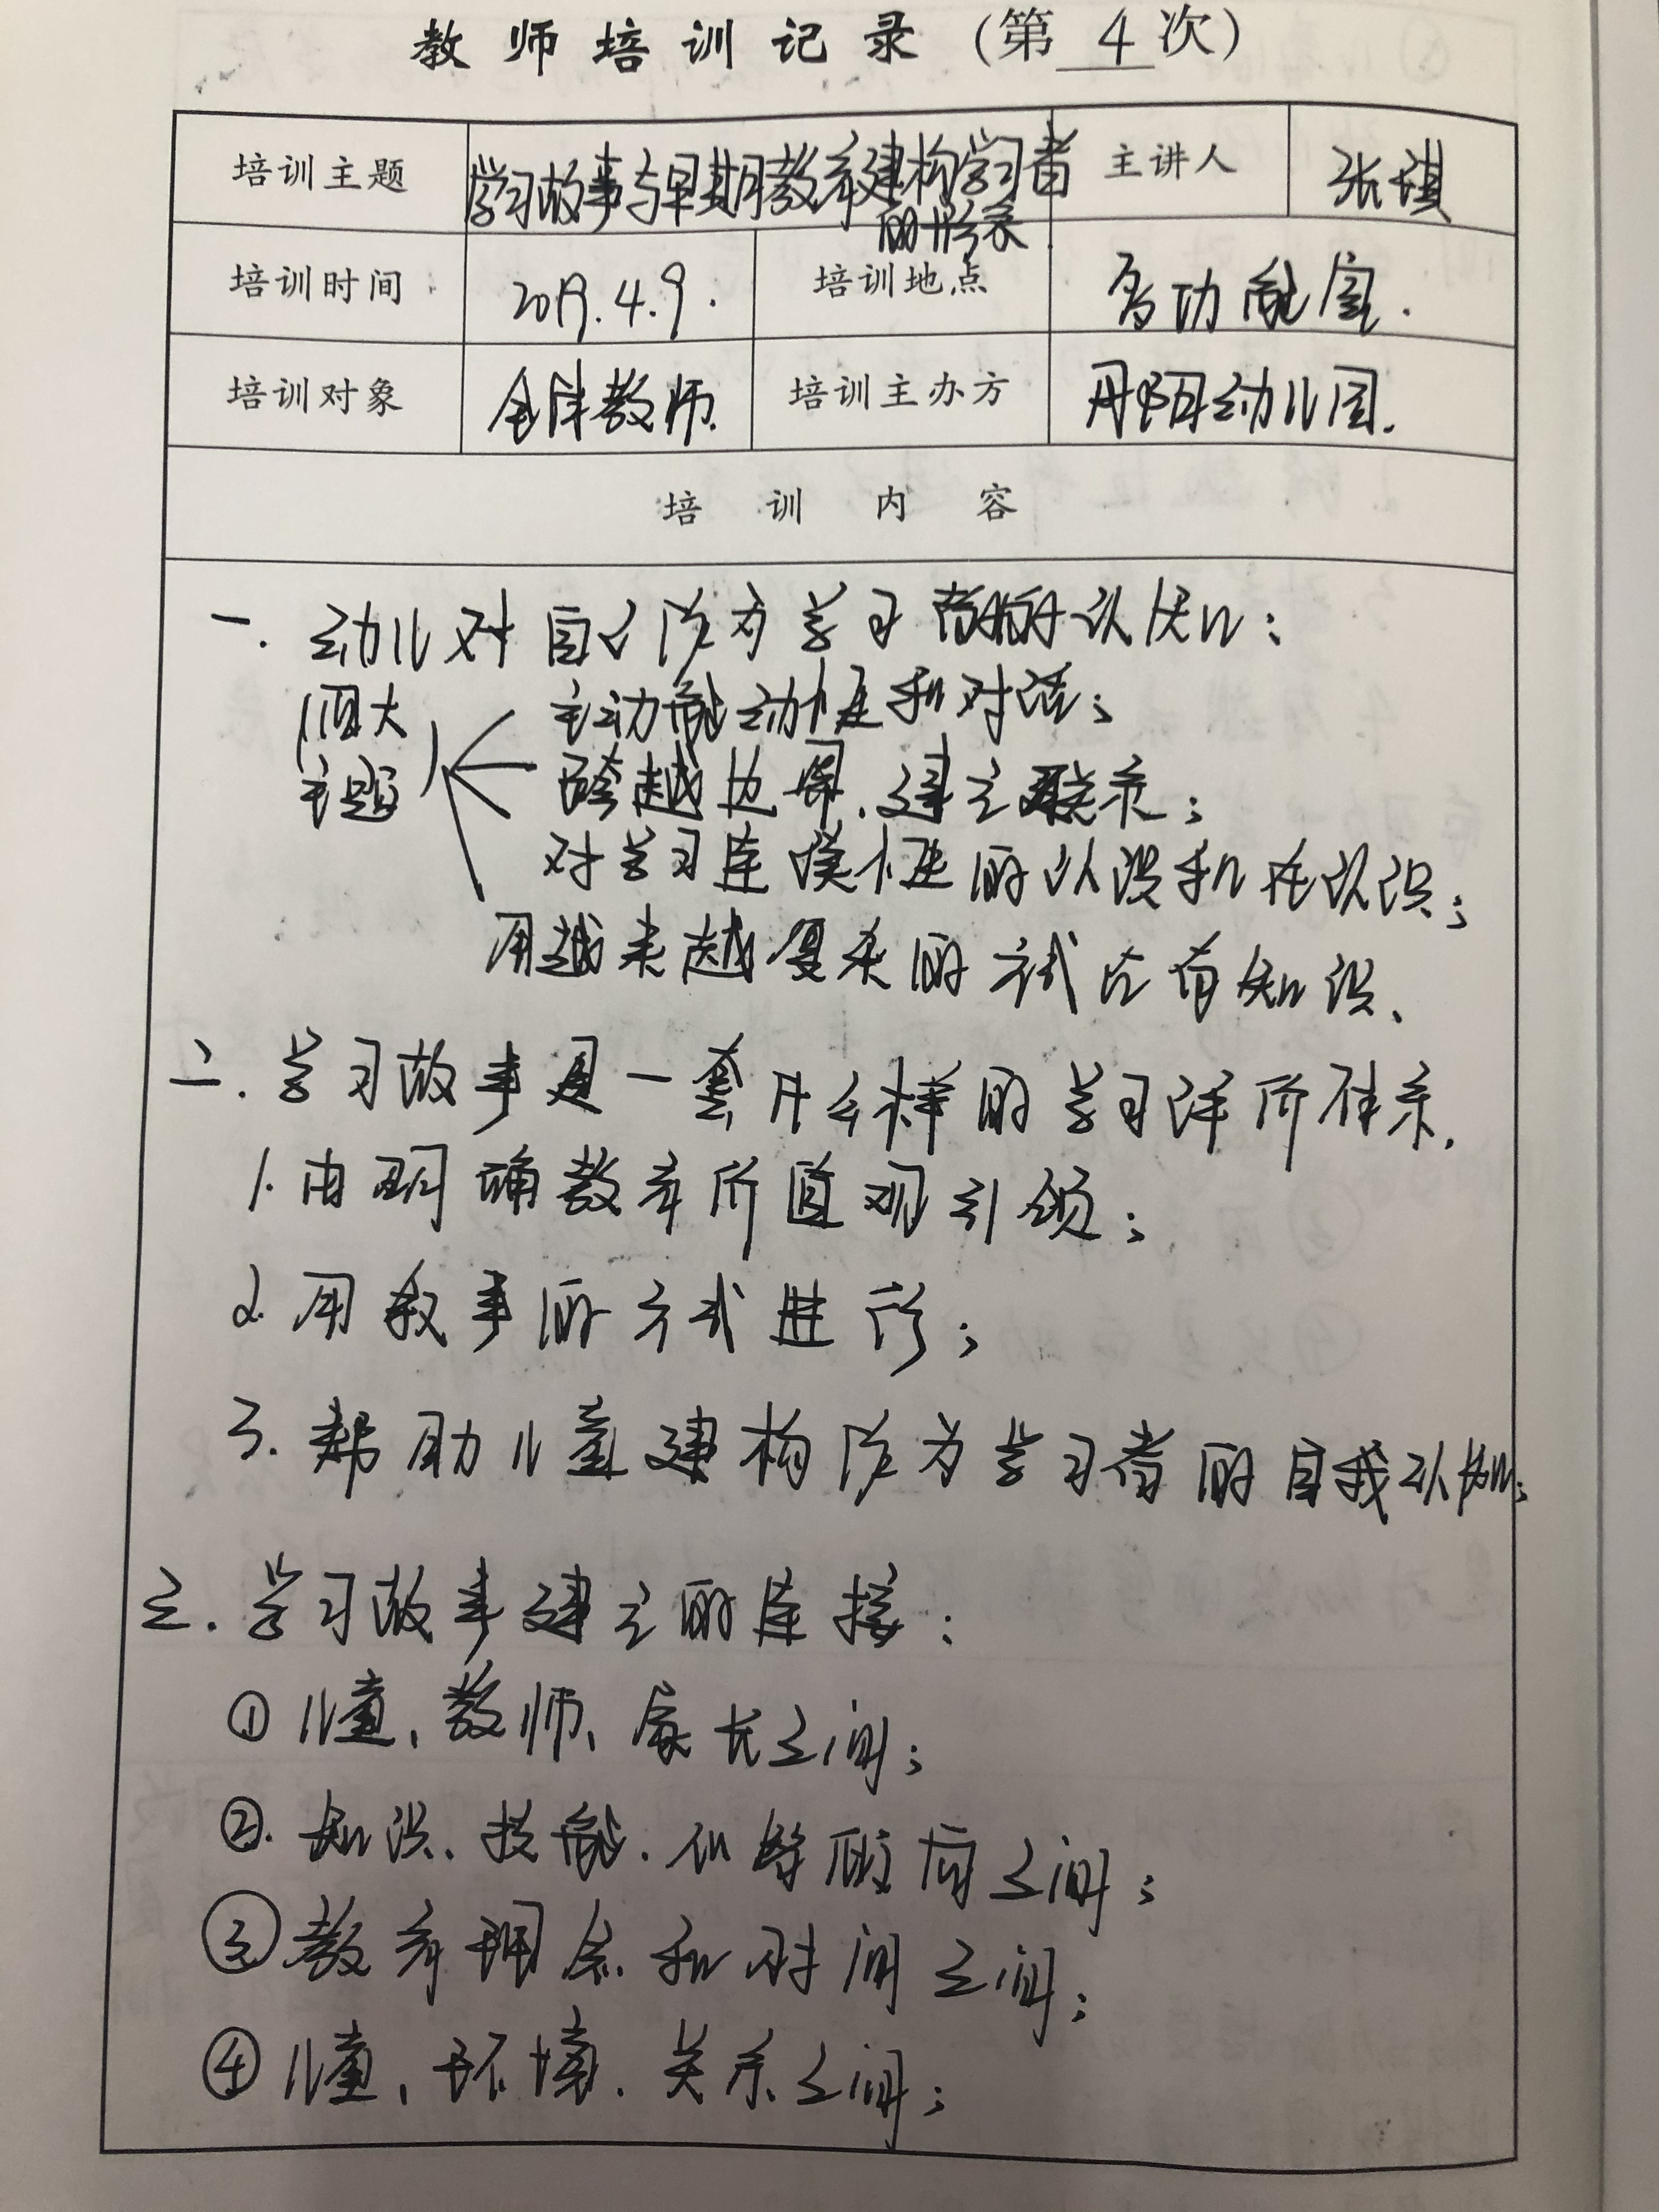 教师培训记录（第 4 次）
培训主题 学习故事与早期教育建构学习者的形象 主讲人 张琪
培训时间 2019.4.9. 培训地点 多功能室.
培训对象 全体教师. 培训主办方 丹阳幼儿园.
培训内容
一.幼儿对自己作为学习者的认知:
(四大主题)
主动能动性和对话;
跨越边界.建立联系;
对学习连续性的认识和再认识;
用越来越复杂的方式占有知识、
二.学习故事是一套什么样的学习评价体系.
1.由明确教育价值观引领;
2.用叙事的方式进行;
3.帮助儿童建构作为学习者的自我认知;
三.学习故事建立的连接:
①儿童、教师、家长之间;
②.知识、技能.心智倾向之间;
③教育理念和时间之间;
④儿童、环境.关系之间;